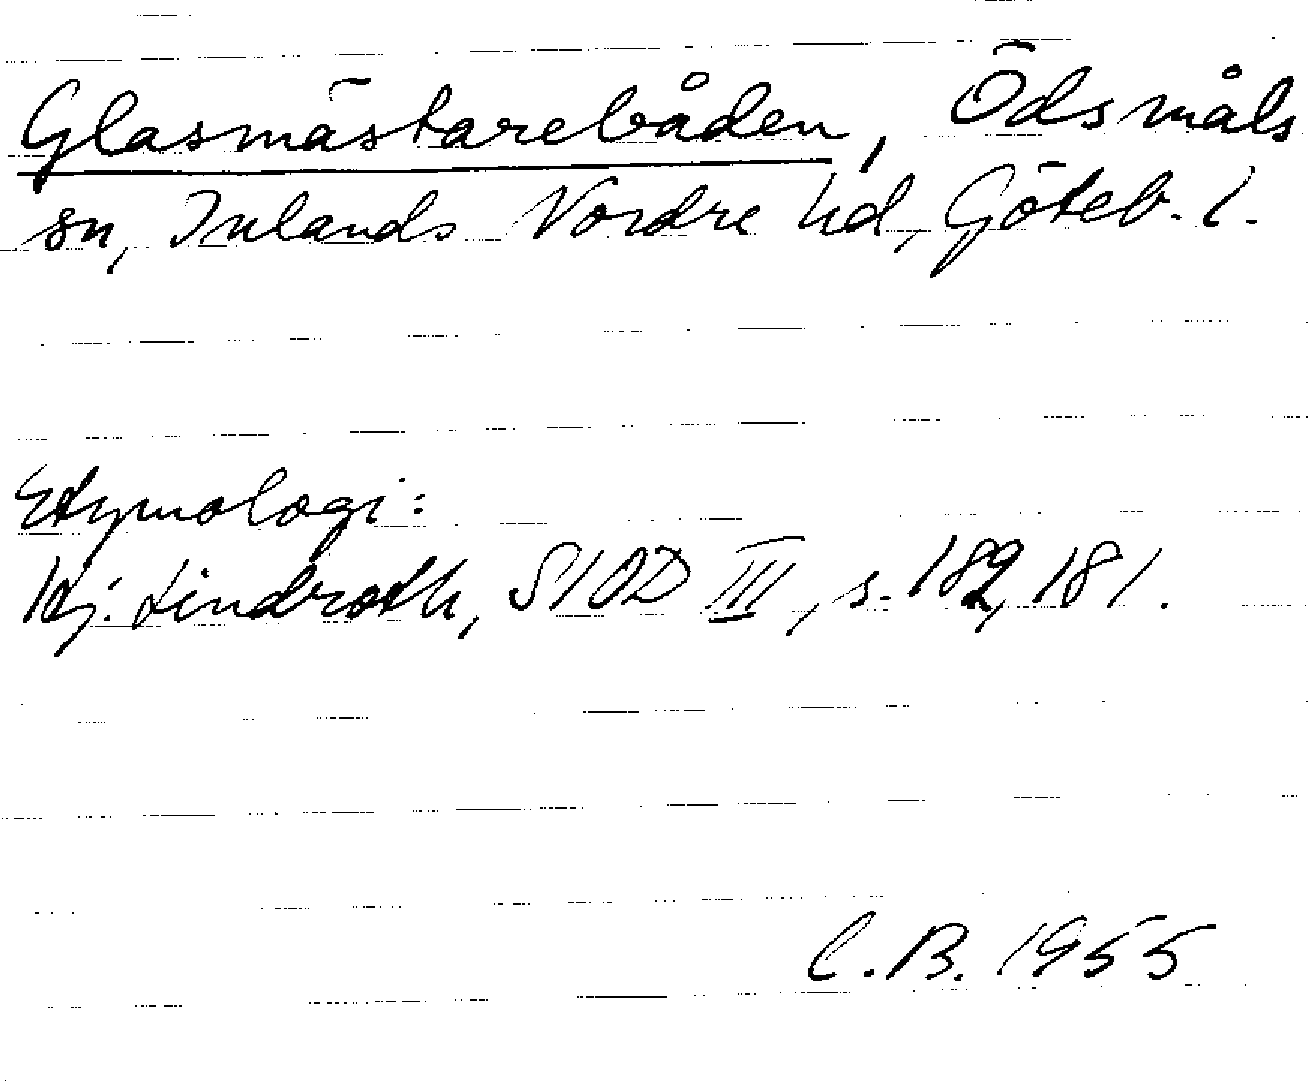 Glasmästarebåden, Ödsmåls
sn, Inlands Nordre hd, Göteb. l.
Etymologi:
Hj. Lindroth, SIOD III, s. 182, 181.
C.B. 1955